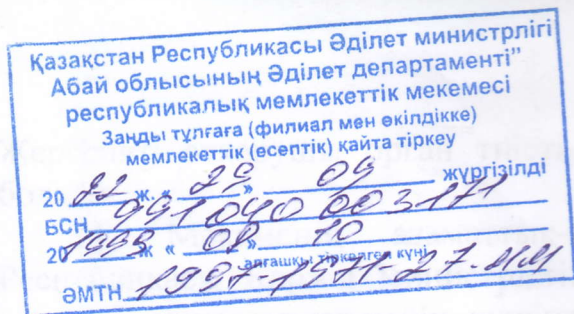 Қазақстан Республикасы Әділет министрлігі
Абай облысының Әділет департаменті"
республикалық мемлекеттік мекемесі
Заңды тұлғаға (филиал мен өкілдікке)
мемлекеттік (есептік) қайта тіркеу
20 22 ж. « 29 » 09 жүргізілді
БСН 991040003171
20 1999 ж « 02 » 10
алғашқы тіркелген күні
ӘМТН 1997-1971-27-ММ